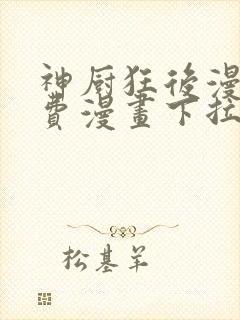 神厨狂後漫
費漫畫下拉
松基羊